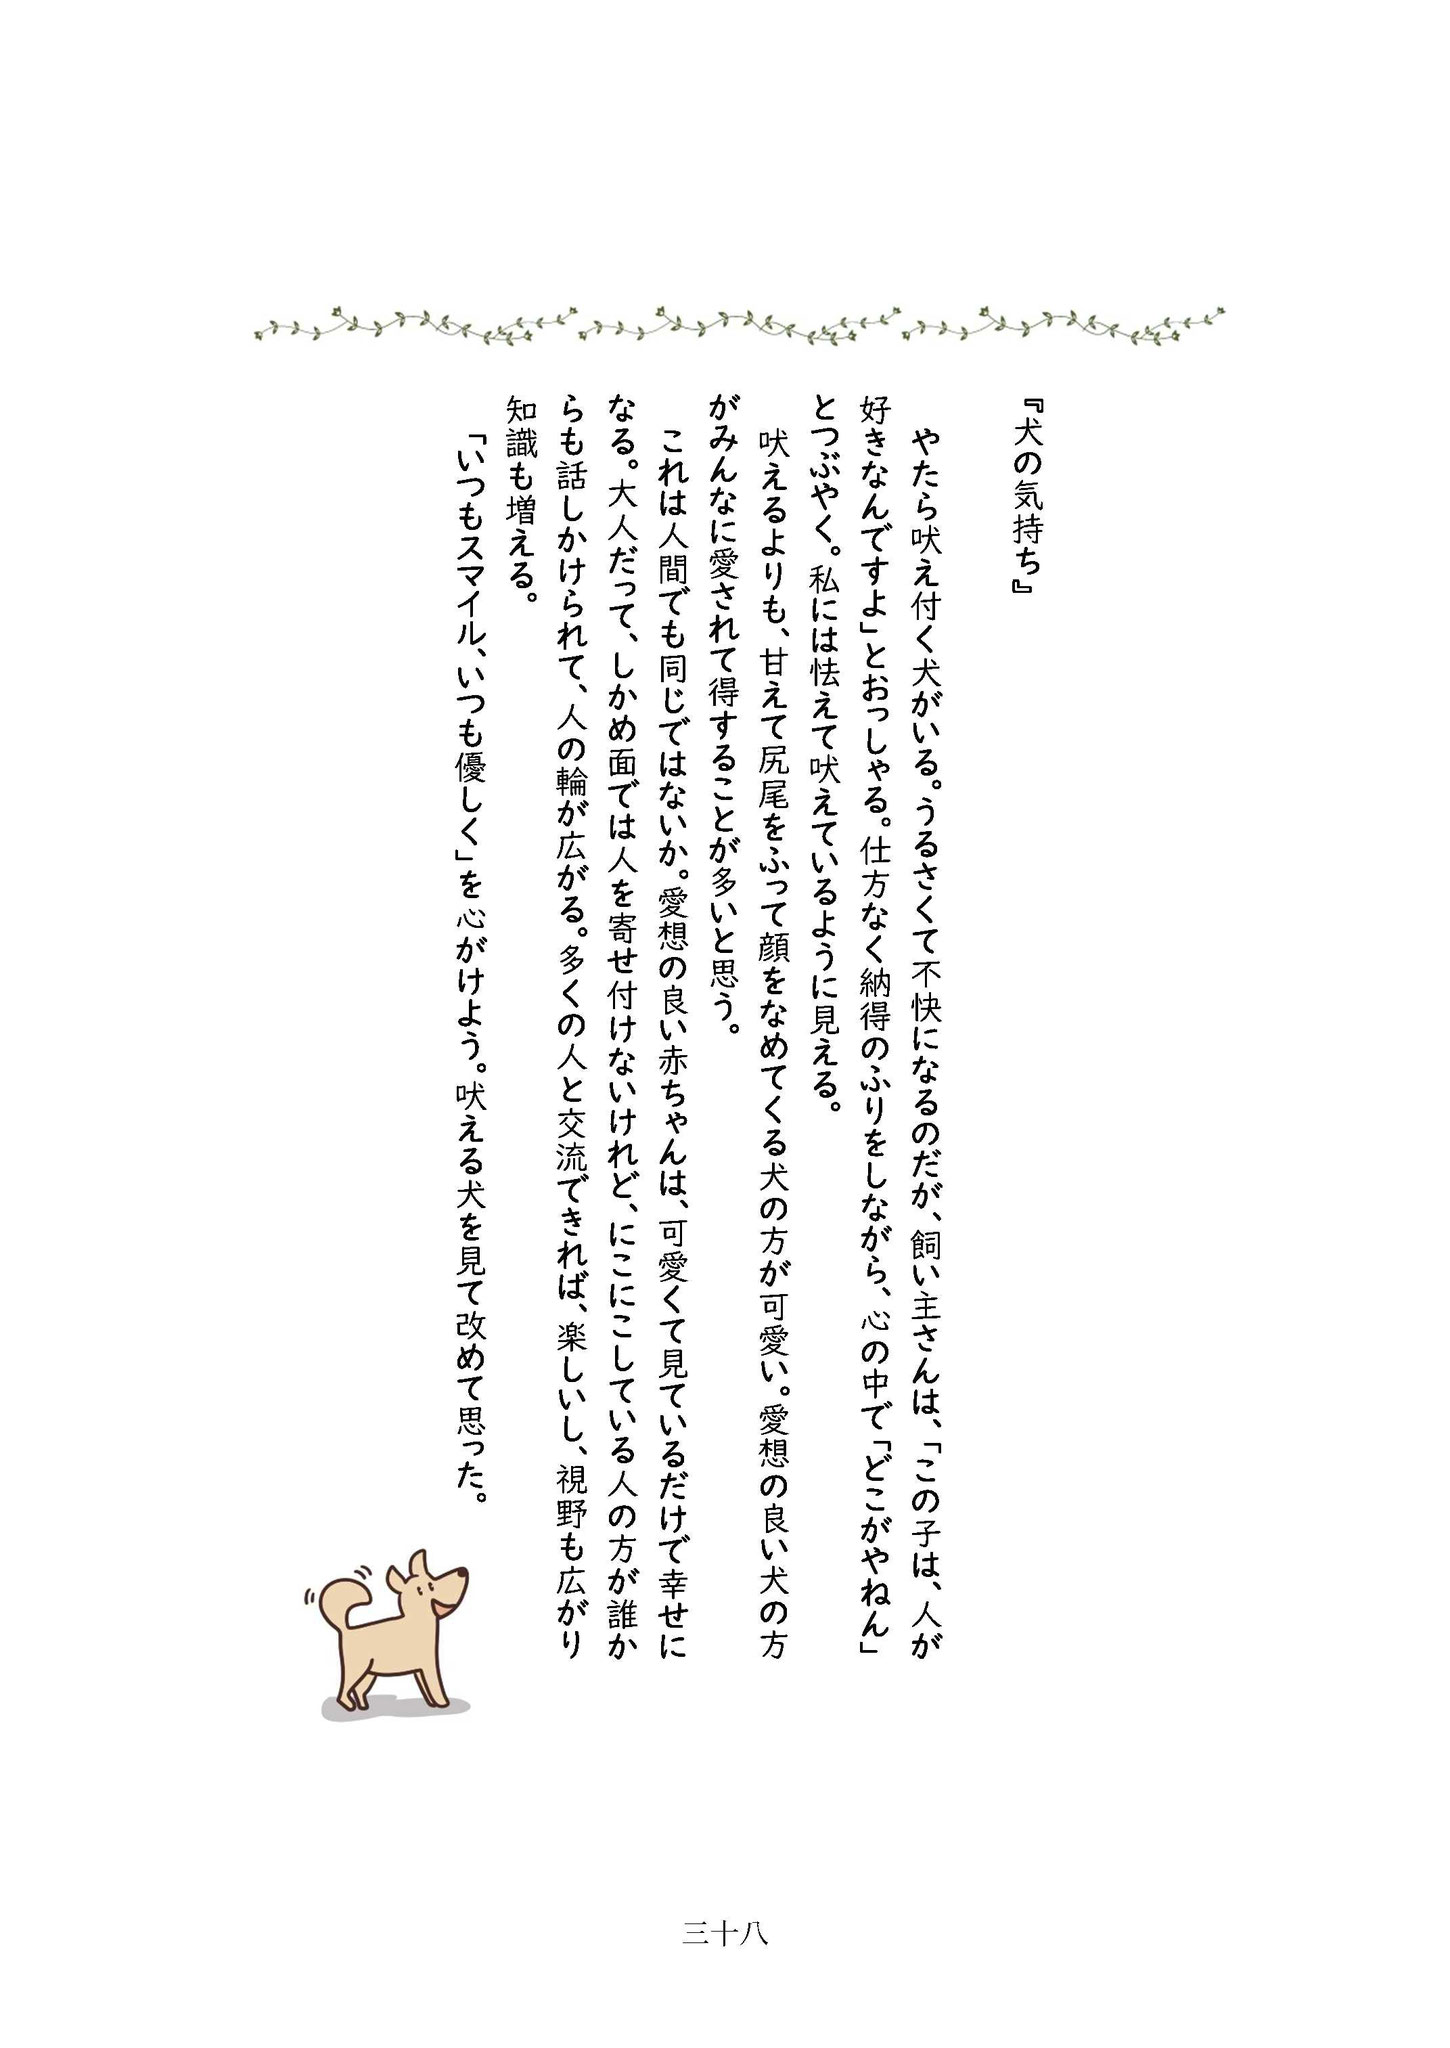 『犬の気持ち』
やたら吠え付く犬がいる。うるさくて不快になるのだが、飼い主さんは、「この子は、人が
好きなんですよ」とおっしゃる。仕方なく納得のふりをしながら、心の中で「どこがやねん」
とつぶやく。私には怯えて吠えているように見える。
吠えるよりも、甘えて尻尾をふって顔をなめてくる犬の方が可愛い。愛想の良い犬の方
がみんなに愛されて得することが多いと思う。
これは人間でも同じではないか。愛想の良い赤ちゃんは、可愛くて見ているだけで幸せに
なる。大人だって、しかめ面では人を寄せ付けないけれど、にこにこしている人の方が誰か
らも話しかけられて、人の輪が広がる。多くの人と交流できれば、楽しいし、視野も広がり
知識も増える。
「いつもスマイル、いつも優しく」を心がけよう。吠える犬を見て改めて思った。
三十八